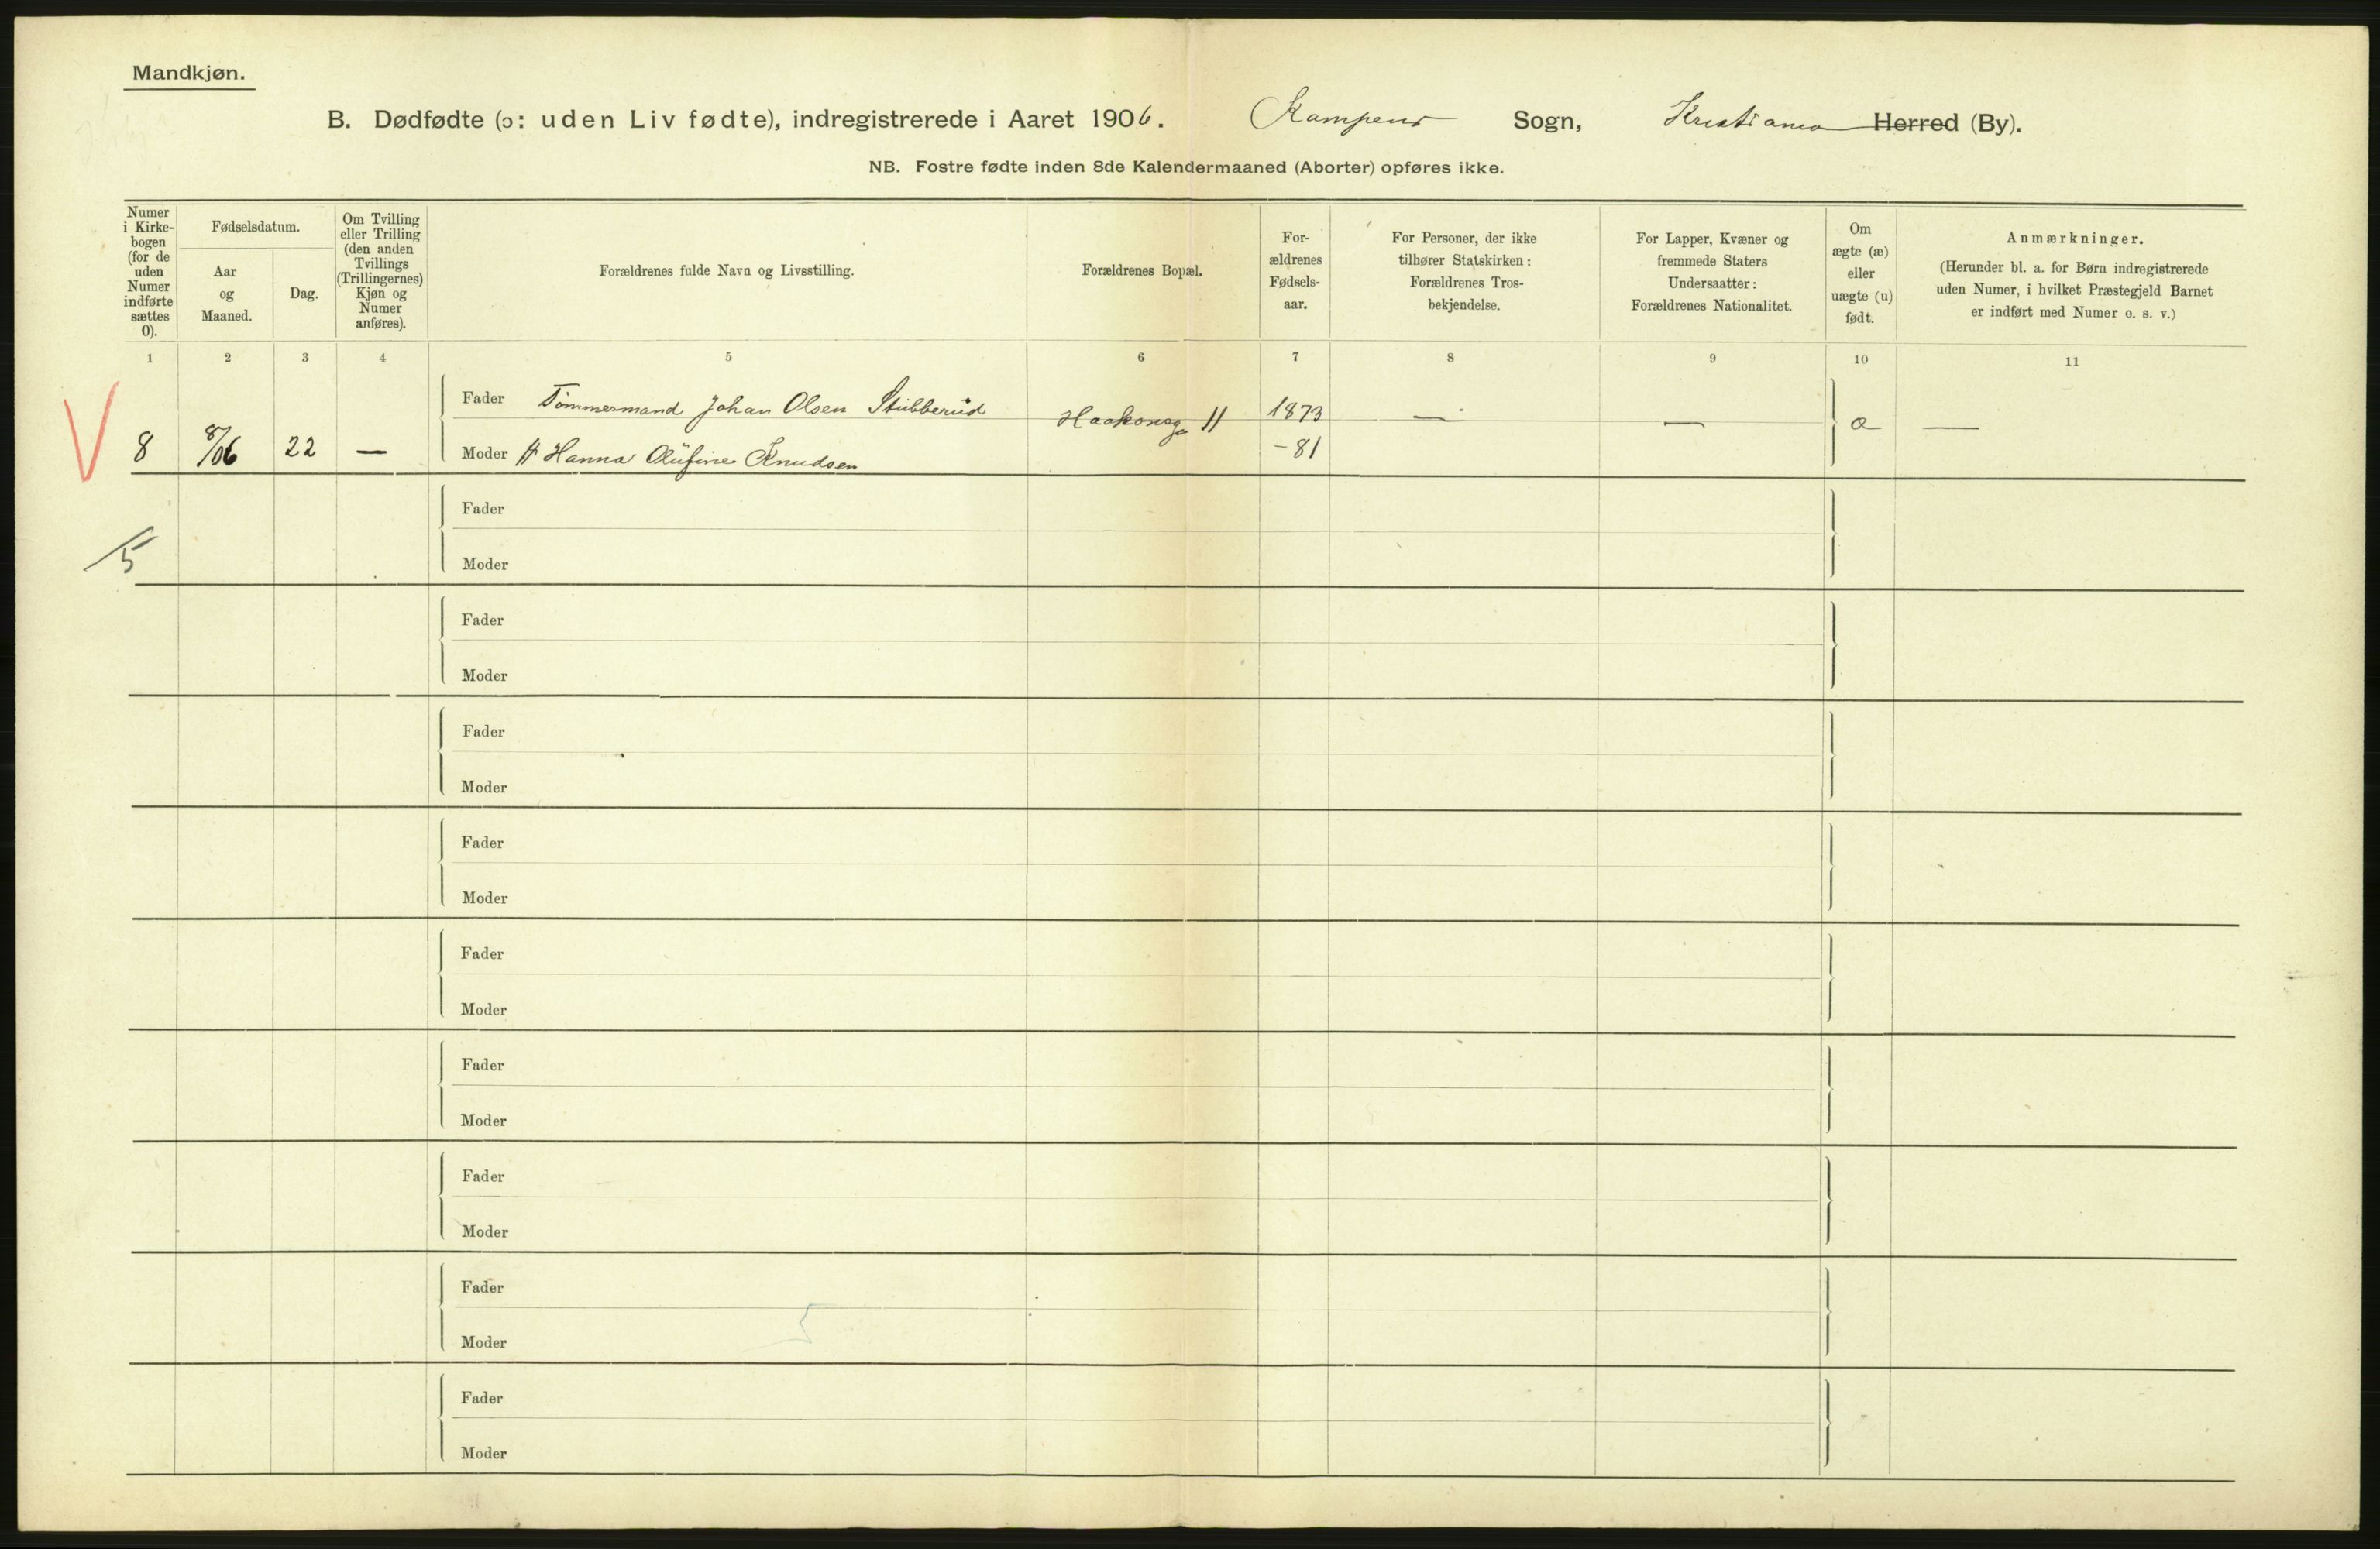 Mandkjøn.
B. Dødfødte (ɔ: uden Liv fødte), indregistrerede i Aaret 1906. Kampens Sogn, Kristiania Herred (By).
NB. Fostre fødte inden 8de Kalendermaaned (Aborter) opføres ikke.
Numer i Kirke-bogen (for de uden Numer indførte sættes 0).
Fødselsdatum.
Aar og Maaned.
Dag.
Om Tvilling eller Trilling (den anden Tvillings (Trillingernes) Kjøn og Numer anføres).
Forældrenes fulde Navn og Livsstilling.
Forældrenes Bopæl.
For-ældrenes Fødsels-aar.
For Personer, der ikke tilhører Statskirken: Forældrenes Tros-bekjendelse.
For Lapper, Kvæner og fremmede Staters Undersaatter: Forældrenes Nationalitet.
Om ægte (æ) eller uægte (u) født.
Anmærkninger.
(Herunder bl. a. for Børn indregistrerede uden Numer, i hvilket Præstegjeld Barnet er indført med Numer o. s. v.)
1 2 3 4 5 6 7 8 9 10 11
V
Fader Tömmermand Johan Olsen Stubberud Haakonsg 11 1873 — — æ —
8 8/06 22 — Moder H Hanna Olufine Knudsen - 81
Fader
5
Moder
Fader
Moder
Fader
Moder
Fader
Moder
Fader
Moder
Fader
Moder
Fader
Moder
Fader
5
Moder
Fader
Moder